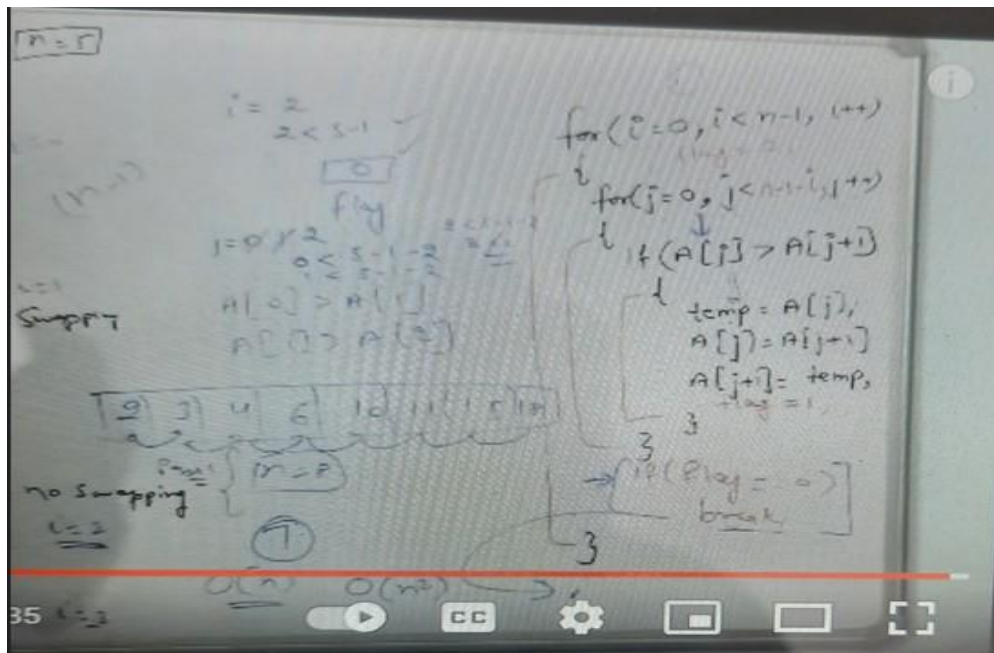 n=5
i = 2
2 < 5-1
(n-1)
0
flag
j=0 1 2
0 < 5-1-2
1 < 5-1-2
A[0] > A[1]
A[1] > A[2]
i=1
Swapping
3 4 6 10 11 15
n=8
no Swapping
i=2
7
O(n) O(n²)
i=3
for(i=0, i<n-1, i++)
{
for(j=0, j<n-1-i, j++)
{
if (A[j] > A[j+1]
{
temp = A[j];
A[j]=A[j+1]
A[j+1]= temp,
flag = 1
}
}
if(flag = 0)
break,
}
35
CC